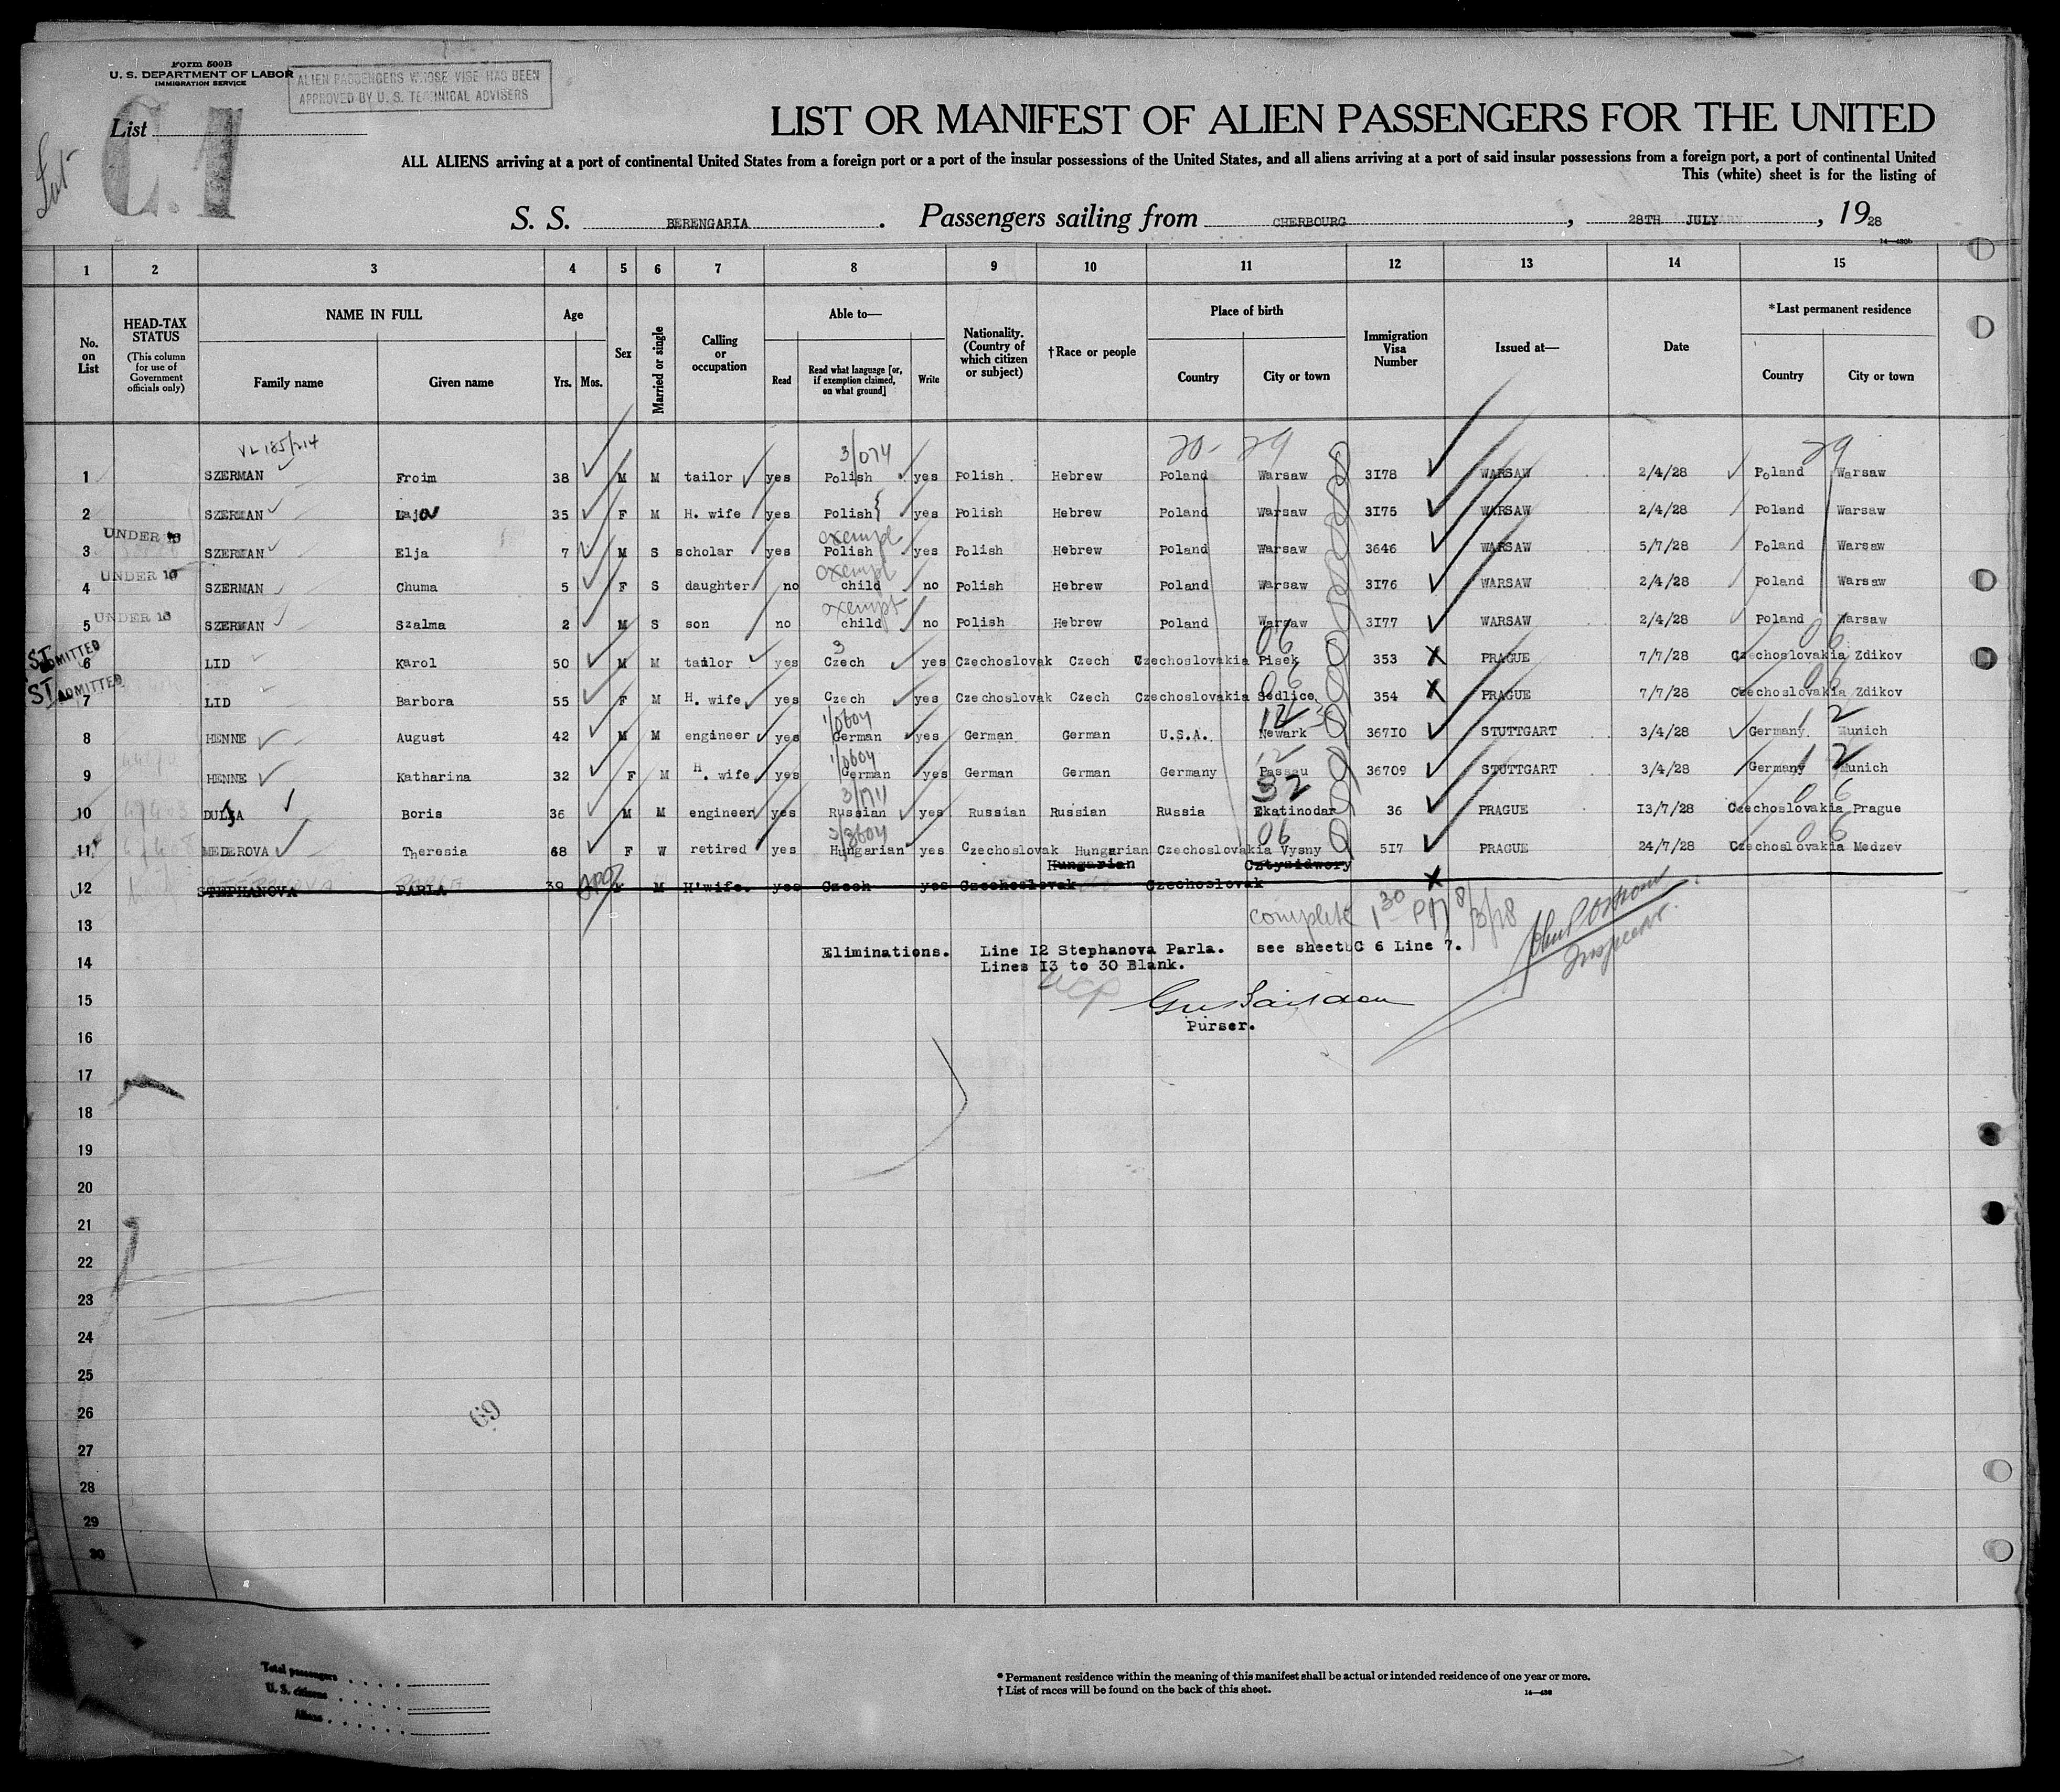 Form 500B
U. S. DEPARTMENT OF LABOR
IMMIGRATION SERVICE
ALIEN PASSENGERS WHOSE VISE HAS BEEN
APPROVED BY U. S. TECHNICAL ADVISERS
List
C.1
LIST OR MANIFEST OF ALIEN PASSENGERS FOR THE UNITED
ALL ALIENS arriving at a port of continental United States from a foreign port or a port of the insular possessions of the United States, and all aliens arriving at a port of said insular possessions from a foreign port, a port of continental United
This (white) sheet is for the listing of
S. S. BERENGARIA. Passengers sailing from CHERBOURG, 28TH JULY, 1928
14—430b
1 2 3 4 5 6 7 8 9 10 11 12 13 14 15
No. on List
HEAD-TAX STATUS
(This column for use of Government officials only)
NAME IN FULL
Family name Given name
Age
Yrs. Mos.
Sex
Married or single
Calling or occupation
Able to—
Read
Read what language [or, if exemption claimed, on what ground]
Write
Nationality. (Country of which citizen or subject)
†Race or people
Place of birth
Country City or town
Immigration Visa Number
Issued at—
Date
*Last permanent residence
Country City or town
VL 185/214 3/074 20- 29 29
1 SZERMAN Froim 38 M M tailor yes Polish yes Polish Hebrew Poland Warsaw 3178 WARSAW 2/4/28 Poland Warsaw
2 SZERMAN 35 F M H. wife yes Polish yes Polish Hebrew Poland Warsaw 3175 WARSAW 2/4/28 Poland Warsaw
UNDER 16 exempt
3 SZERMAN Elja 7 M S scholar yes Polish yes Polish Hebrew Poland Warsaw 3646 WARSAW 5/7/28 Poland Warsaw
UNDER 16 exempt
4 SZERMAN Chuma 5 F S daughter no child no Polish Hebrew Poland Warsaw 3176 WARSAW 2/4/28 Poland Warsaw
UNDER 16 exempt
5 SZERMAN Szalma 2 M S son no child no Polish Hebrew Poland Warsaw 3177 WARSAW 2/4/28 Poland Warsaw
ST ADMITTED 3 06 06
6 LID Karol 50 M M tailor yes Czech yes Czechoslovak Czech Czechoslovakia Pisek 353 PRAGUE 7/7/28 Czechoslovakia Zdikov
ST ADMITTED 06 06
7 LID Barbora 55 F M H. wife yes Czech yes Czechoslovak Czech Czechoslovakia Sedlice 354 PRAGUE 7/7/28 Czechoslovakia Zdikov
12 12
8 HENNE August 42 M M engineer yes German yes German German U.S.A. Newark 36710 STUTTGART 3/4/28 Germany Munich
12 12
9 HENNE Katharina 32 F M H. wife yes German yes German German Germany Passau 36709 STUTTGART 3/4/28 Germany Munich
32 06
10 Boris 36 M M engineer yes Russian yes Russian Russian Russia Ekatinodar 36 PRAGUE 13/7/28 Czechoslovakia Prague
06 06
11 MEDEROVA Theresia 68 F W retired yes Hungarian yes Czechoslovak Hungarian Czechoslovakia Vysny 517 PRAGUE 24/7/28 Czechoslovakia Medzev
Hungarian
12 STEPHANOVA PARLA 39 F M H'wife. yes Czech yes Czechoslovak Czechoslovak
complete 1 30 PM 8/3/28
13
Eliminations. Line 12 Stephanova Parla. see sheet C 6 Line 7.
Inspector.
14 Lines 13 to 30 Blank.
15
Purser.
16
17
18
19
20
21
22
23
24
25
26
69
27
28
29
30
Total passengers
U. S. citizens
Aliens
* Permanent residence within the meaning of this manifest shall be actual or intended residence of one year or more.
† List of races will be found on the back of this sheet.
14—430